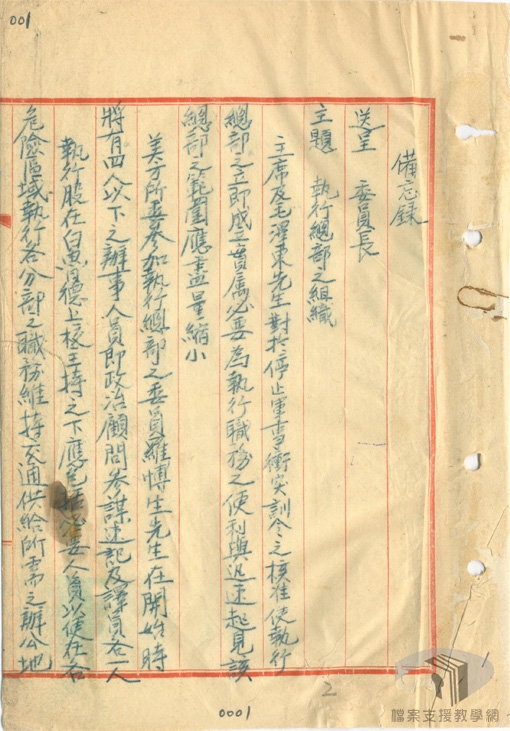 001
備忘録
送呈　委員長
主題　執行總部之組織
主席及毛澤東先生對於停止軍事衝突訓令之核准使執行
總部之立即成立實屬必要為執行職務之便利與迅速起見該
總部之範圍應盡量縮小
美方所委參加執行總部之委員羅博生先生在開始時
將有四人以下之辦事人員即政治顧問參謀速記及譯員各一人
執行股在白魯德上校主持之下應包括必要人員以使在各
危險區域執行各分部之職務維持交通供給所需之辦公地
2
0001
檔案支援教學網